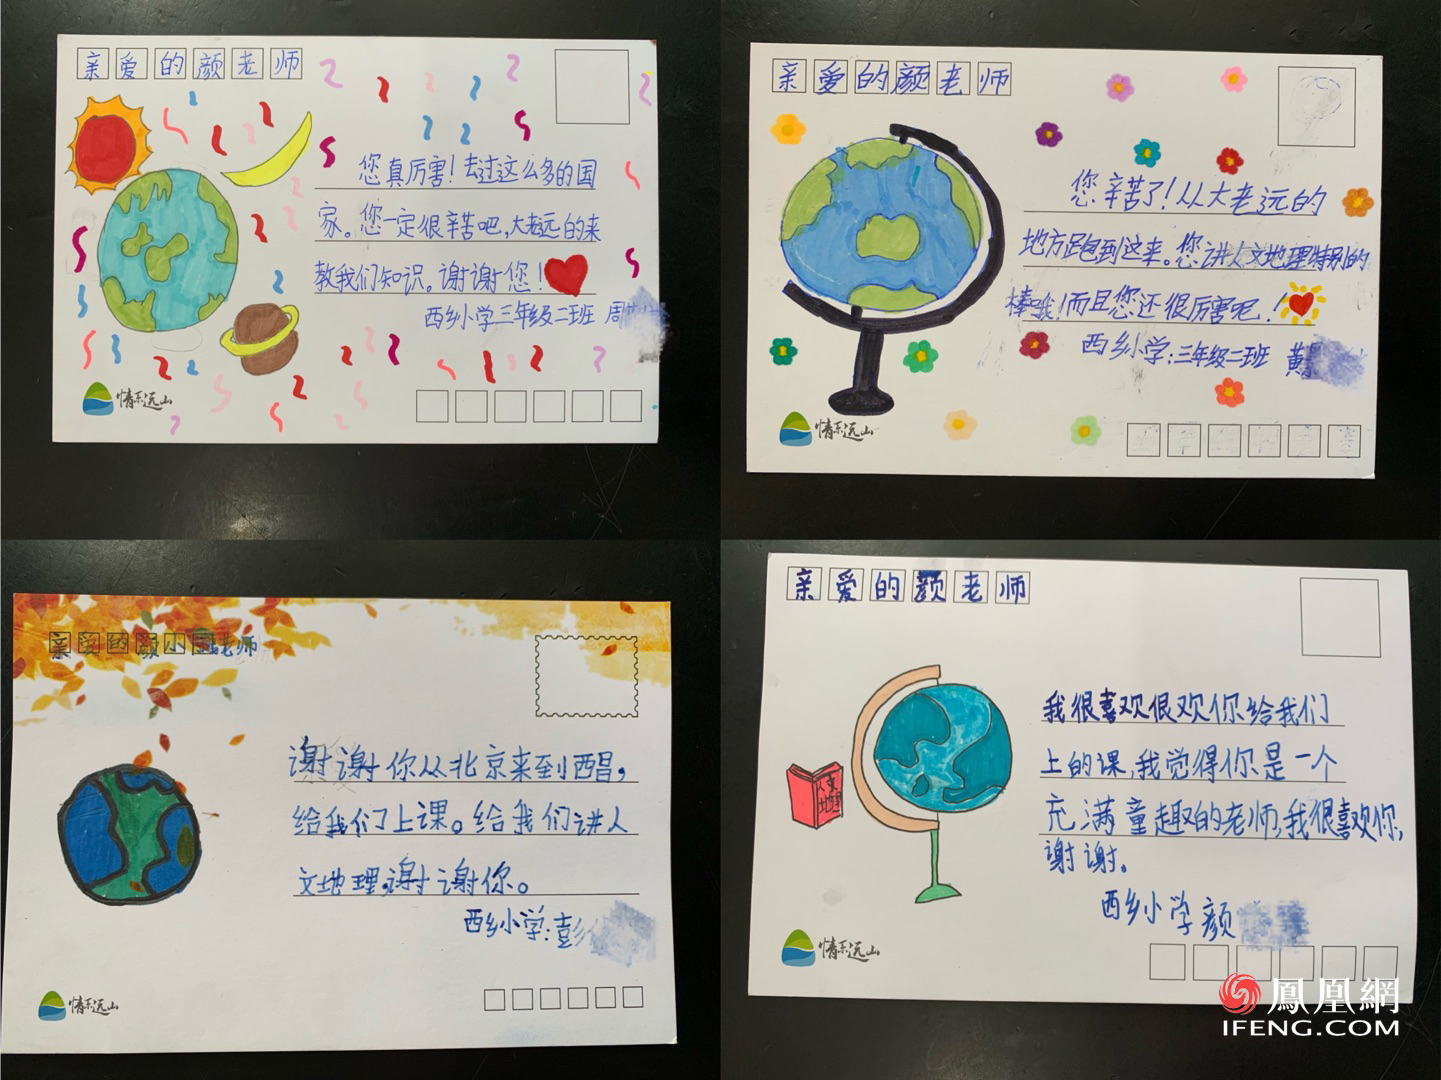 亲爱的颜老师
您真厉害！去过这么多的国
家。您一定很辛苦吧，大老远的来
教我们知识。谢谢您！
西乡小学三年级二班 周
情系远山
亲爱的颜老师
您辛苦了！从大老远的
地方跑到这来。您讲人文地理特别的
棒哦！而且您还很厉害吧！
西乡小学：三年级二班 黄
情系远山
亲爱的颜小 老师
谢谢你从北京来到西昌，
给我们上课。给我们讲人
文地理，谢谢你。
西乡小学：彭
情系远山
亲爱的颜老师
我很喜欢很欢你给我们
上的课，我觉得你是一个
充满童趣的老师，我很喜欢你，
谢谢。
西乡小学颜
人文
地理
情系远山
鳳凰網
IFENG.COM